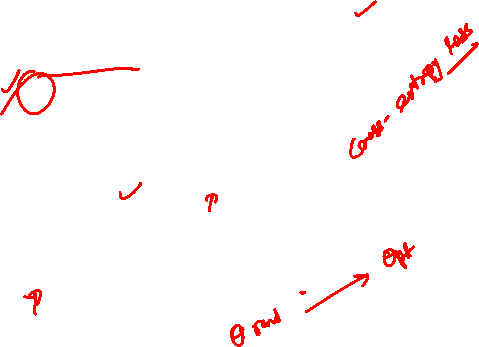 Cross-entropy loss
θ rand → θopt